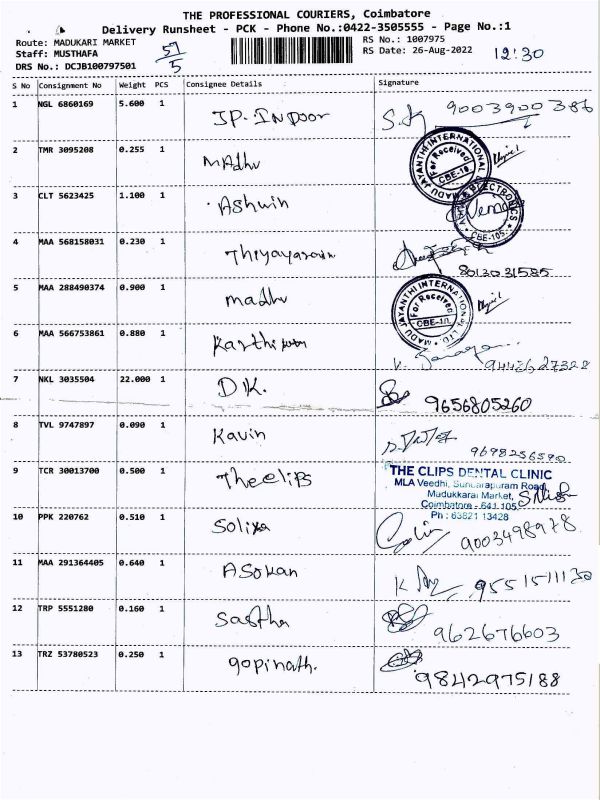 THE PROFESSIONAL COURIERS, Coimbatore
Delivery Runsheet - PCK - Phone No.:0422-3505555 - Page No.:1
Route: MADUKARI MARKET
Staff: MUSTHAFA
DRS No.: DCJB100797501
51/5
RS No.: 1007975
RS Date: 26-Aug-2022
12:30
S No Consignment No Weight PCS Consignee Details Signature
1 NGL 6860169 5.600 1 JP. INDOOR 9003900386
2 TMR 3095208 0.255 1 MAdhu
MADU JAYANTHI INTERNATIONAL
For Received
CBE-10.
3 CLT 5623425 1.100 1 Ashwin
ELECTRONICS
CBE-105.
4 MAA 568158031 0.230 1 8013031585
5 MAA 288490374 0.900 1 madhu
MADU JAYANTHI INTERNATIONAL
For Received
CBE-10.
6 MAA 566753861 0.880 1
7 NKL 3035504 22.000 1 D.K. 9656805260
8 TVL 9747897 0.090 1 Kavin 9698256590
9 TCR 30013700 0.500 1 The clips
THE CLIPS DENTAL CLINIC
MLA Veedhi, Sundarapuram Road,
Mudukkarai Market,
Coimbatore - 641 105.
Ph : 63821 13428
10 PPK 220762 0.510 1 9003498978
11 MAA 291364405 0.640 1 ASOKAN 9551511130
12 TRP 5551280 0.160 1 Sastha 962676603
13 TRZ 53780523 0.250 1 gopinath. 9842975188